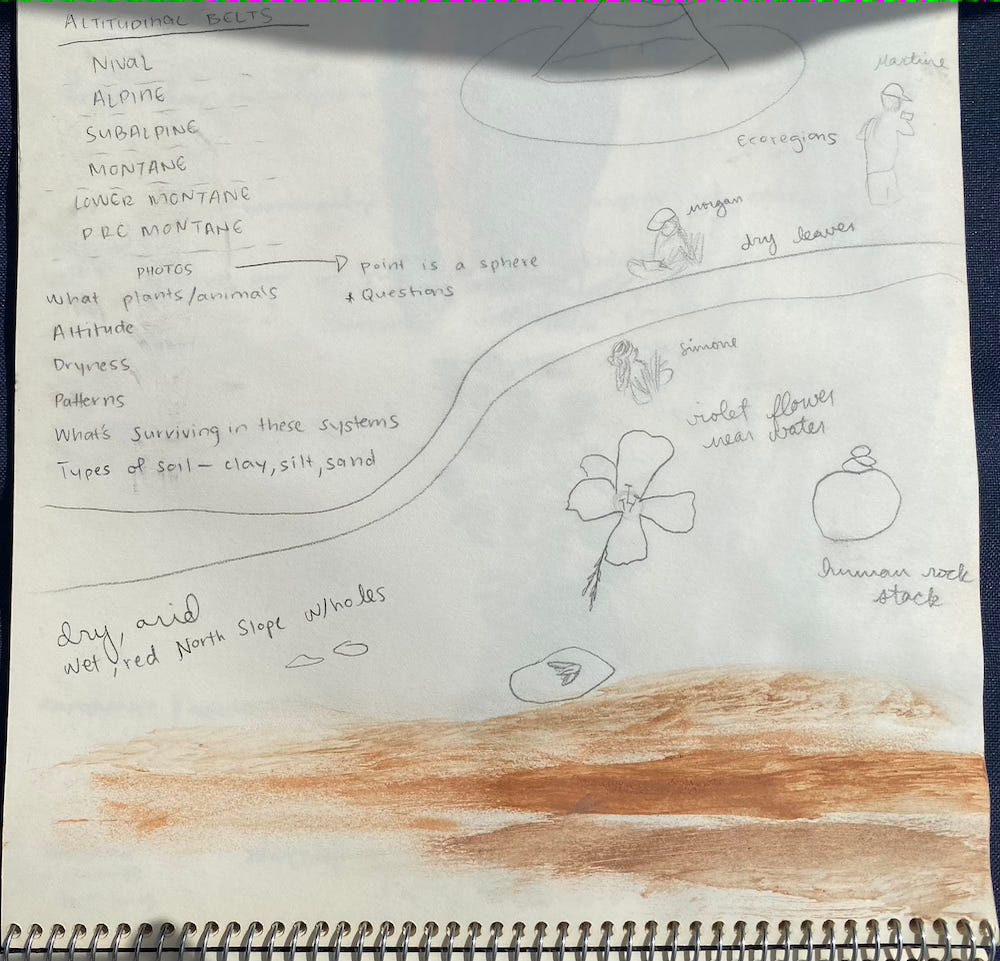 ALTITUDINAL BELTS
NIVAL
ALPINE
SUBALPINE
MONTANE
LOWER MONTANE
PRE MONTANE
PHOTOS → point is a sphere
* Questions
What plants/animals
Altitude
Dryness
Patterns
What's surviving in these systems
Types of soil - clay, silt, sand
Martine
Ecoregions
morgan
dry leaves
simone
violet flower
near water
human rock
stack
dry, arid
Wet, red North Slope w/holes